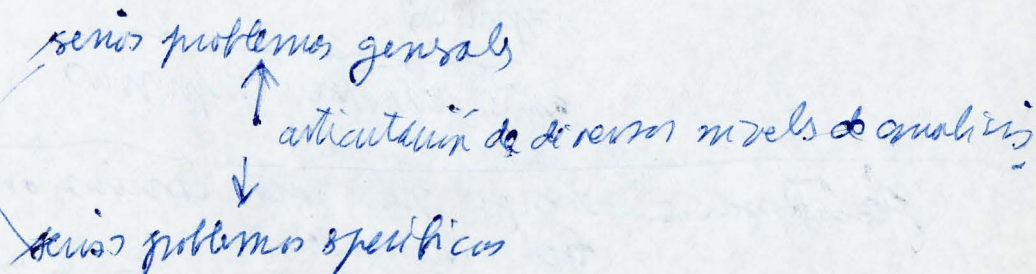 serios problemas generales
articulación de diversos niveles de analisis
serios problemas especificos